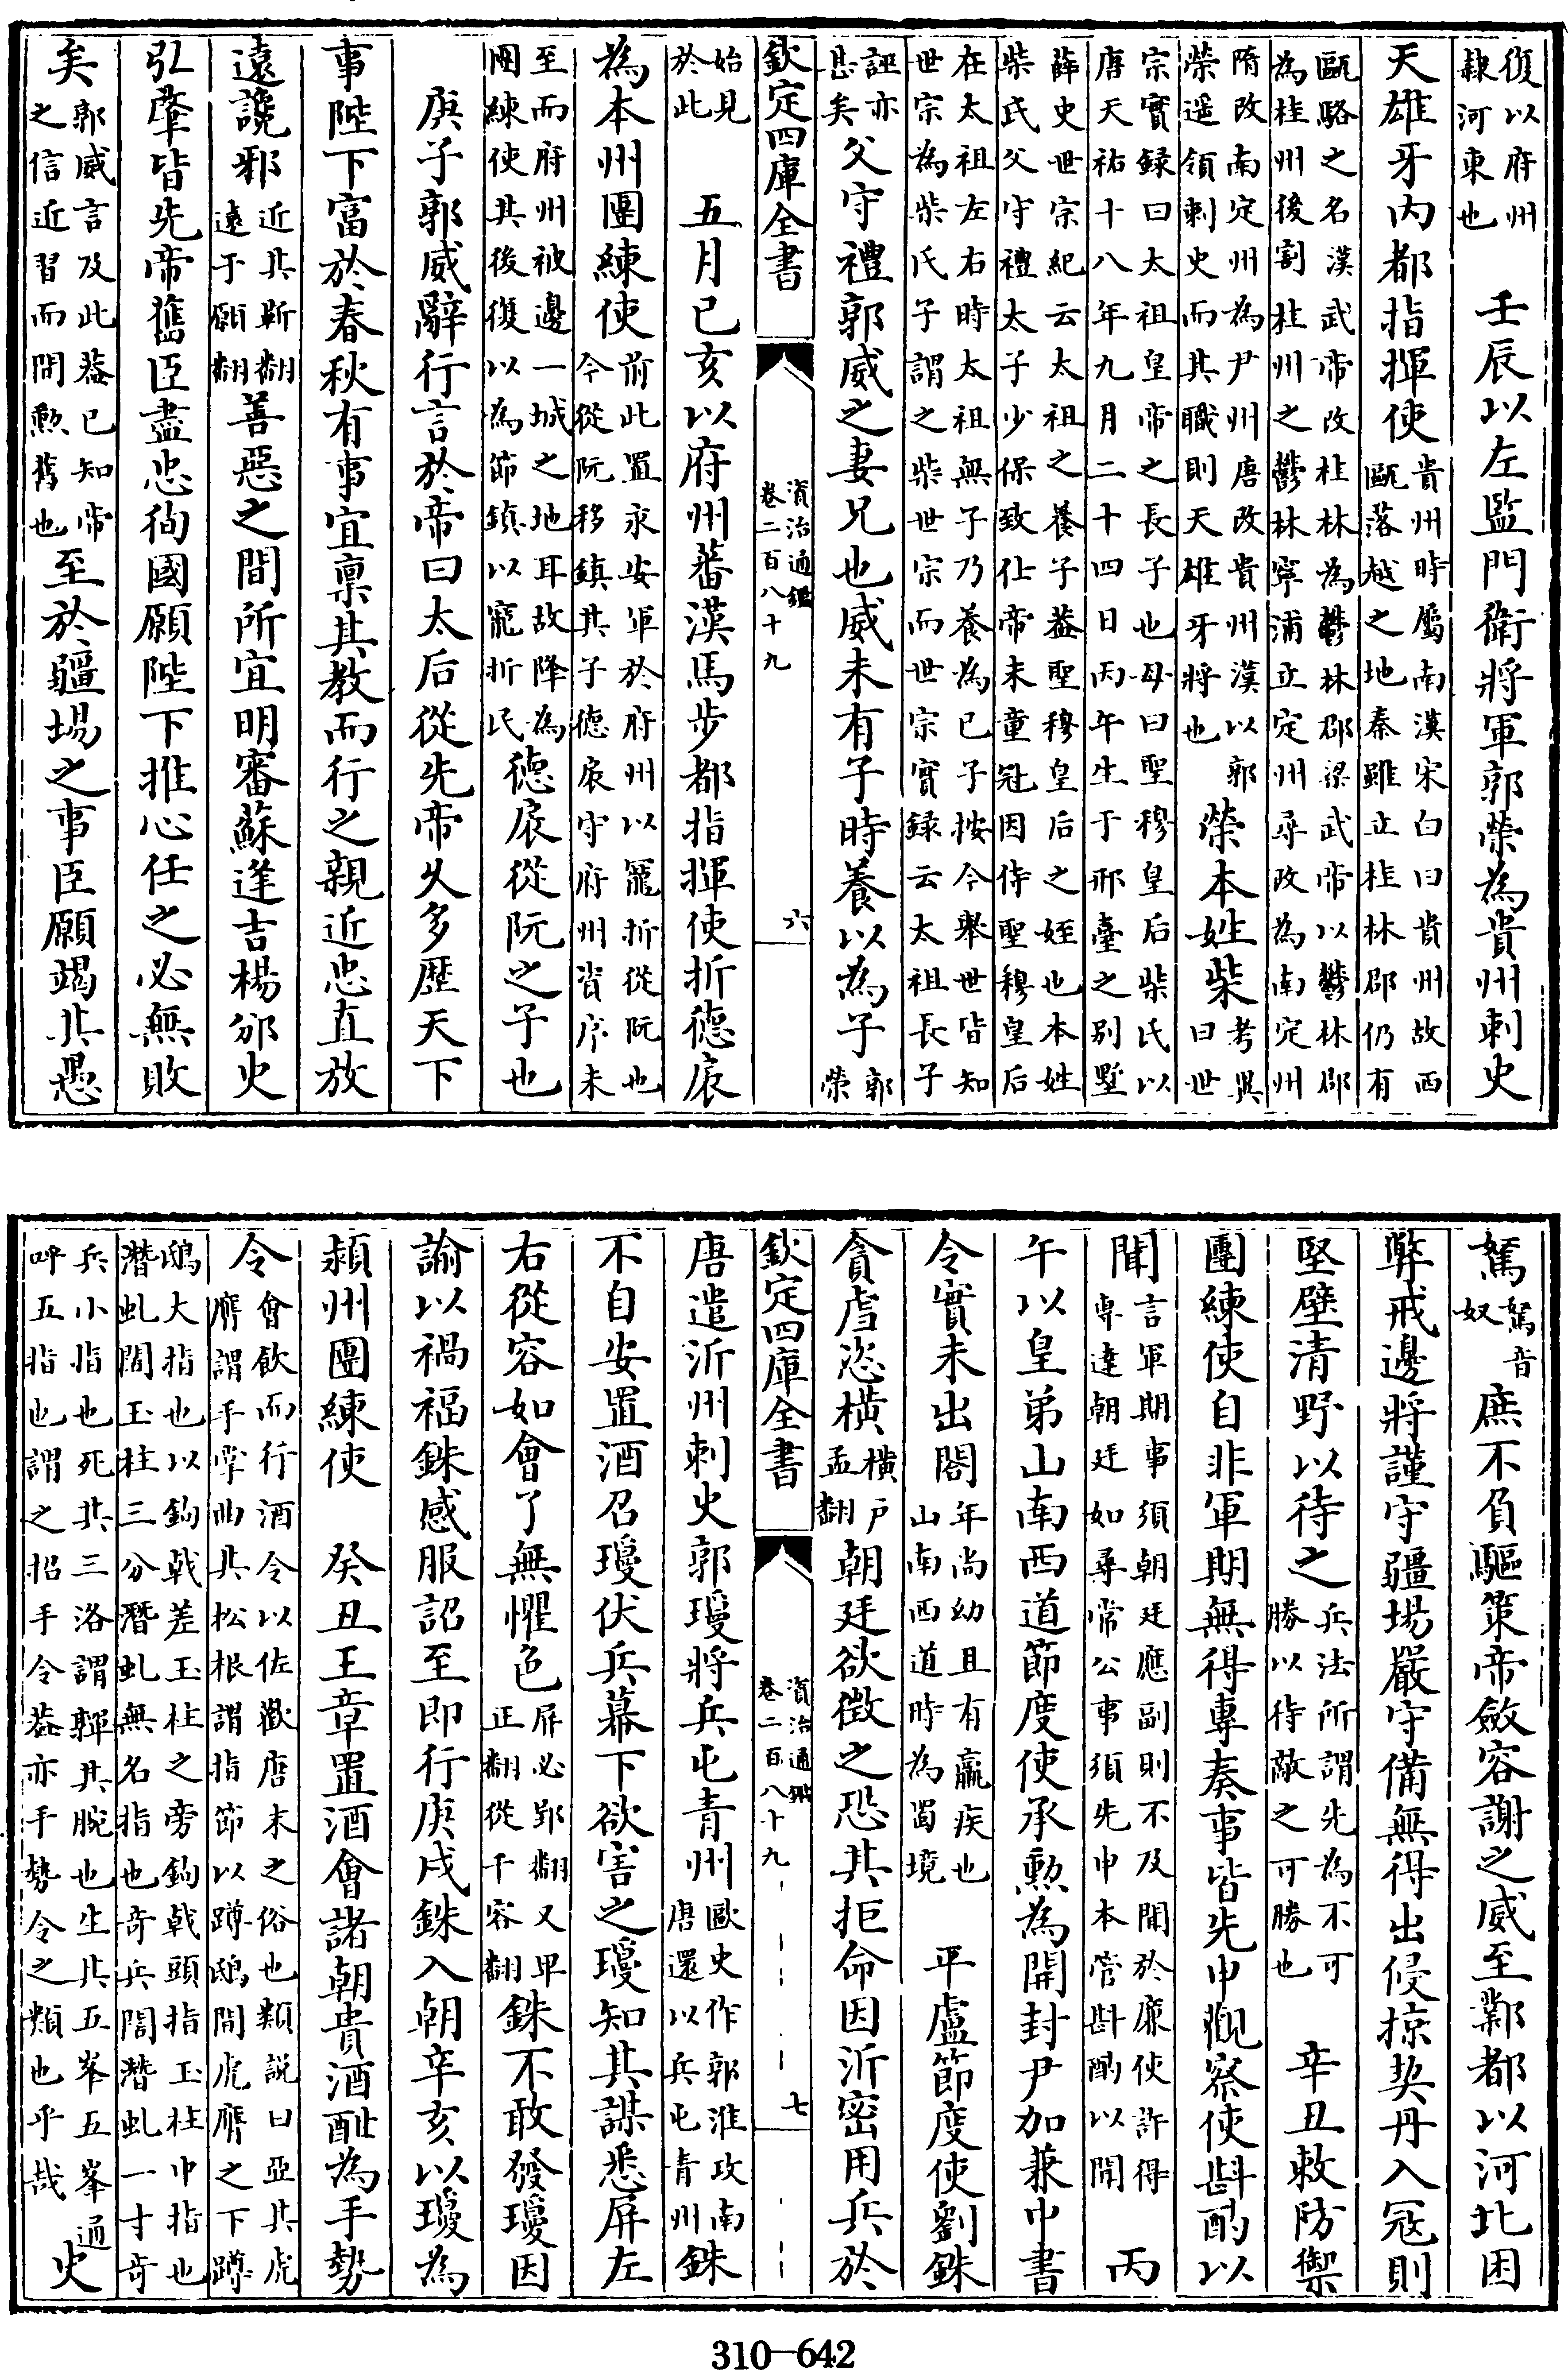 復以府州
隸河東也　壬辰以左監門衛將軍郭榮為貴州刺史
天雄牙內都指揮使貴州時屬南漢宋白曰貴州故西
甌落越之地秦雖立桂林郡仍有
甌駱之名漢武帝改桂林為鬱林郡梁武帝以鬱林郡
為桂州後割桂州之鬱林寧浦立定州尋改為南定州
隋改南定州為尹州唐改貴州漢以郭
榮遥領刺史而其職則天雄牙將也榮本姓柴考異
曰世
宗實録曰太祖皇帝之長子也母曰聖穆皇后柴氏以
唐天祐十八年九月二十四日丙午生于邢臺之别墅
薛史世宗紀云太祖之養子葢聖穆皇后之姪也本姓
柴氏父守禮太子少保致仕帝未童冠因侍聖穆皇后
在太祖左右時太祖無子乃養為已子按今舉世皆知
世宗為柴氏子謂之柴世宗而世宗實録云太祖長子
誣亦
甚矣父守禮郭威之妻兄也威未有子時養以為子郭
榮
欽定四庫全書
資治通鑑
卷二百八十九
六
始見
於此　五月已亥以府州蕃漢馬步都指揮使折德扆
為本州團練使前此置永安軍於府州以寵折從阮也
今從阮移鎮其子德扆守府州資序未
至而府州被邊一城之地耳故降為
團練使其後復以為節鎮以寵折氏德扆從阮之子也
庚子郭威辭行言於帝曰太后從先帝乆多歴天下
事陛下富於春秋有事宜禀其教而行之親近忠直放
遠讒邪近其靳翻
遠于願翻善惡之間所宜明審蘇逢吉楊邠史
弘肇皆先帝舊臣盡忠徇國願陛下推心任之必無敗
矣郭威言及此葢已知帝
之信近習而間勲舊也至於疆埸之事臣願竭其愚
駑駑音
奴庶不負驅策帝斂容謝之威至鄴都以河北困
弊戒邊將謹守疆埸嚴守備無得出侵掠契丹入冦則
堅壁清野以待之兵法所謂先為不可
勝以待敵之可勝也　辛丑敕防禦
團練使自非軍期無得專奏事皆先申觀察使斟酌以
聞言軍期事須朝廷應副則不及聞於廉使許得
專達朝廷如尋常公事須先申本管斟酌以聞　丙
午以皇弟山南西道節度使承勲為開封尹加兼中書
令實未出閤年尚幼且有羸疾也
山南西道時為蜀境　平盧節度使劉銖
貪虐恣横横户
孟翻朝廷欲徵之恐其拒命因沂密用兵於
欽定四庫全書
資治通鑑
卷二百八十九
七
唐遣沂州刺史郭瓊將兵屯青州歐史作郭淮攻南
唐還以兵屯青州銖
不自安置酒召瓊伏兵幕下欲害之瓊知其謀悉屏左
右從容如會了無懼色屏必郢翻又卑
正翻從千容翻銖不敢發瓊因
諭以禍福銖感服詔至即行庚戌銖入朝辛亥以瓊為
潁州團練使　癸丑王章置酒會諸朝貴酒酣為手勢
令會飲而行酒令以佐歡唐末之俗也類説曰亞其虎
膺謂手掌曲其松根謂指節以蹲鴟間虎膺之下蹲
鴟大指也以鈎戟差玉柱之旁鈎戟頭指玉柱中指也
潛虬闊玉柱三分潛虬無名指也奇兵闊潛虬一寸奇
兵小指也死其三洛謂輝其腕也生其五峯五峯通
呼五指也謂之招手令葢亦手勢令之類也乎哉史
310—642